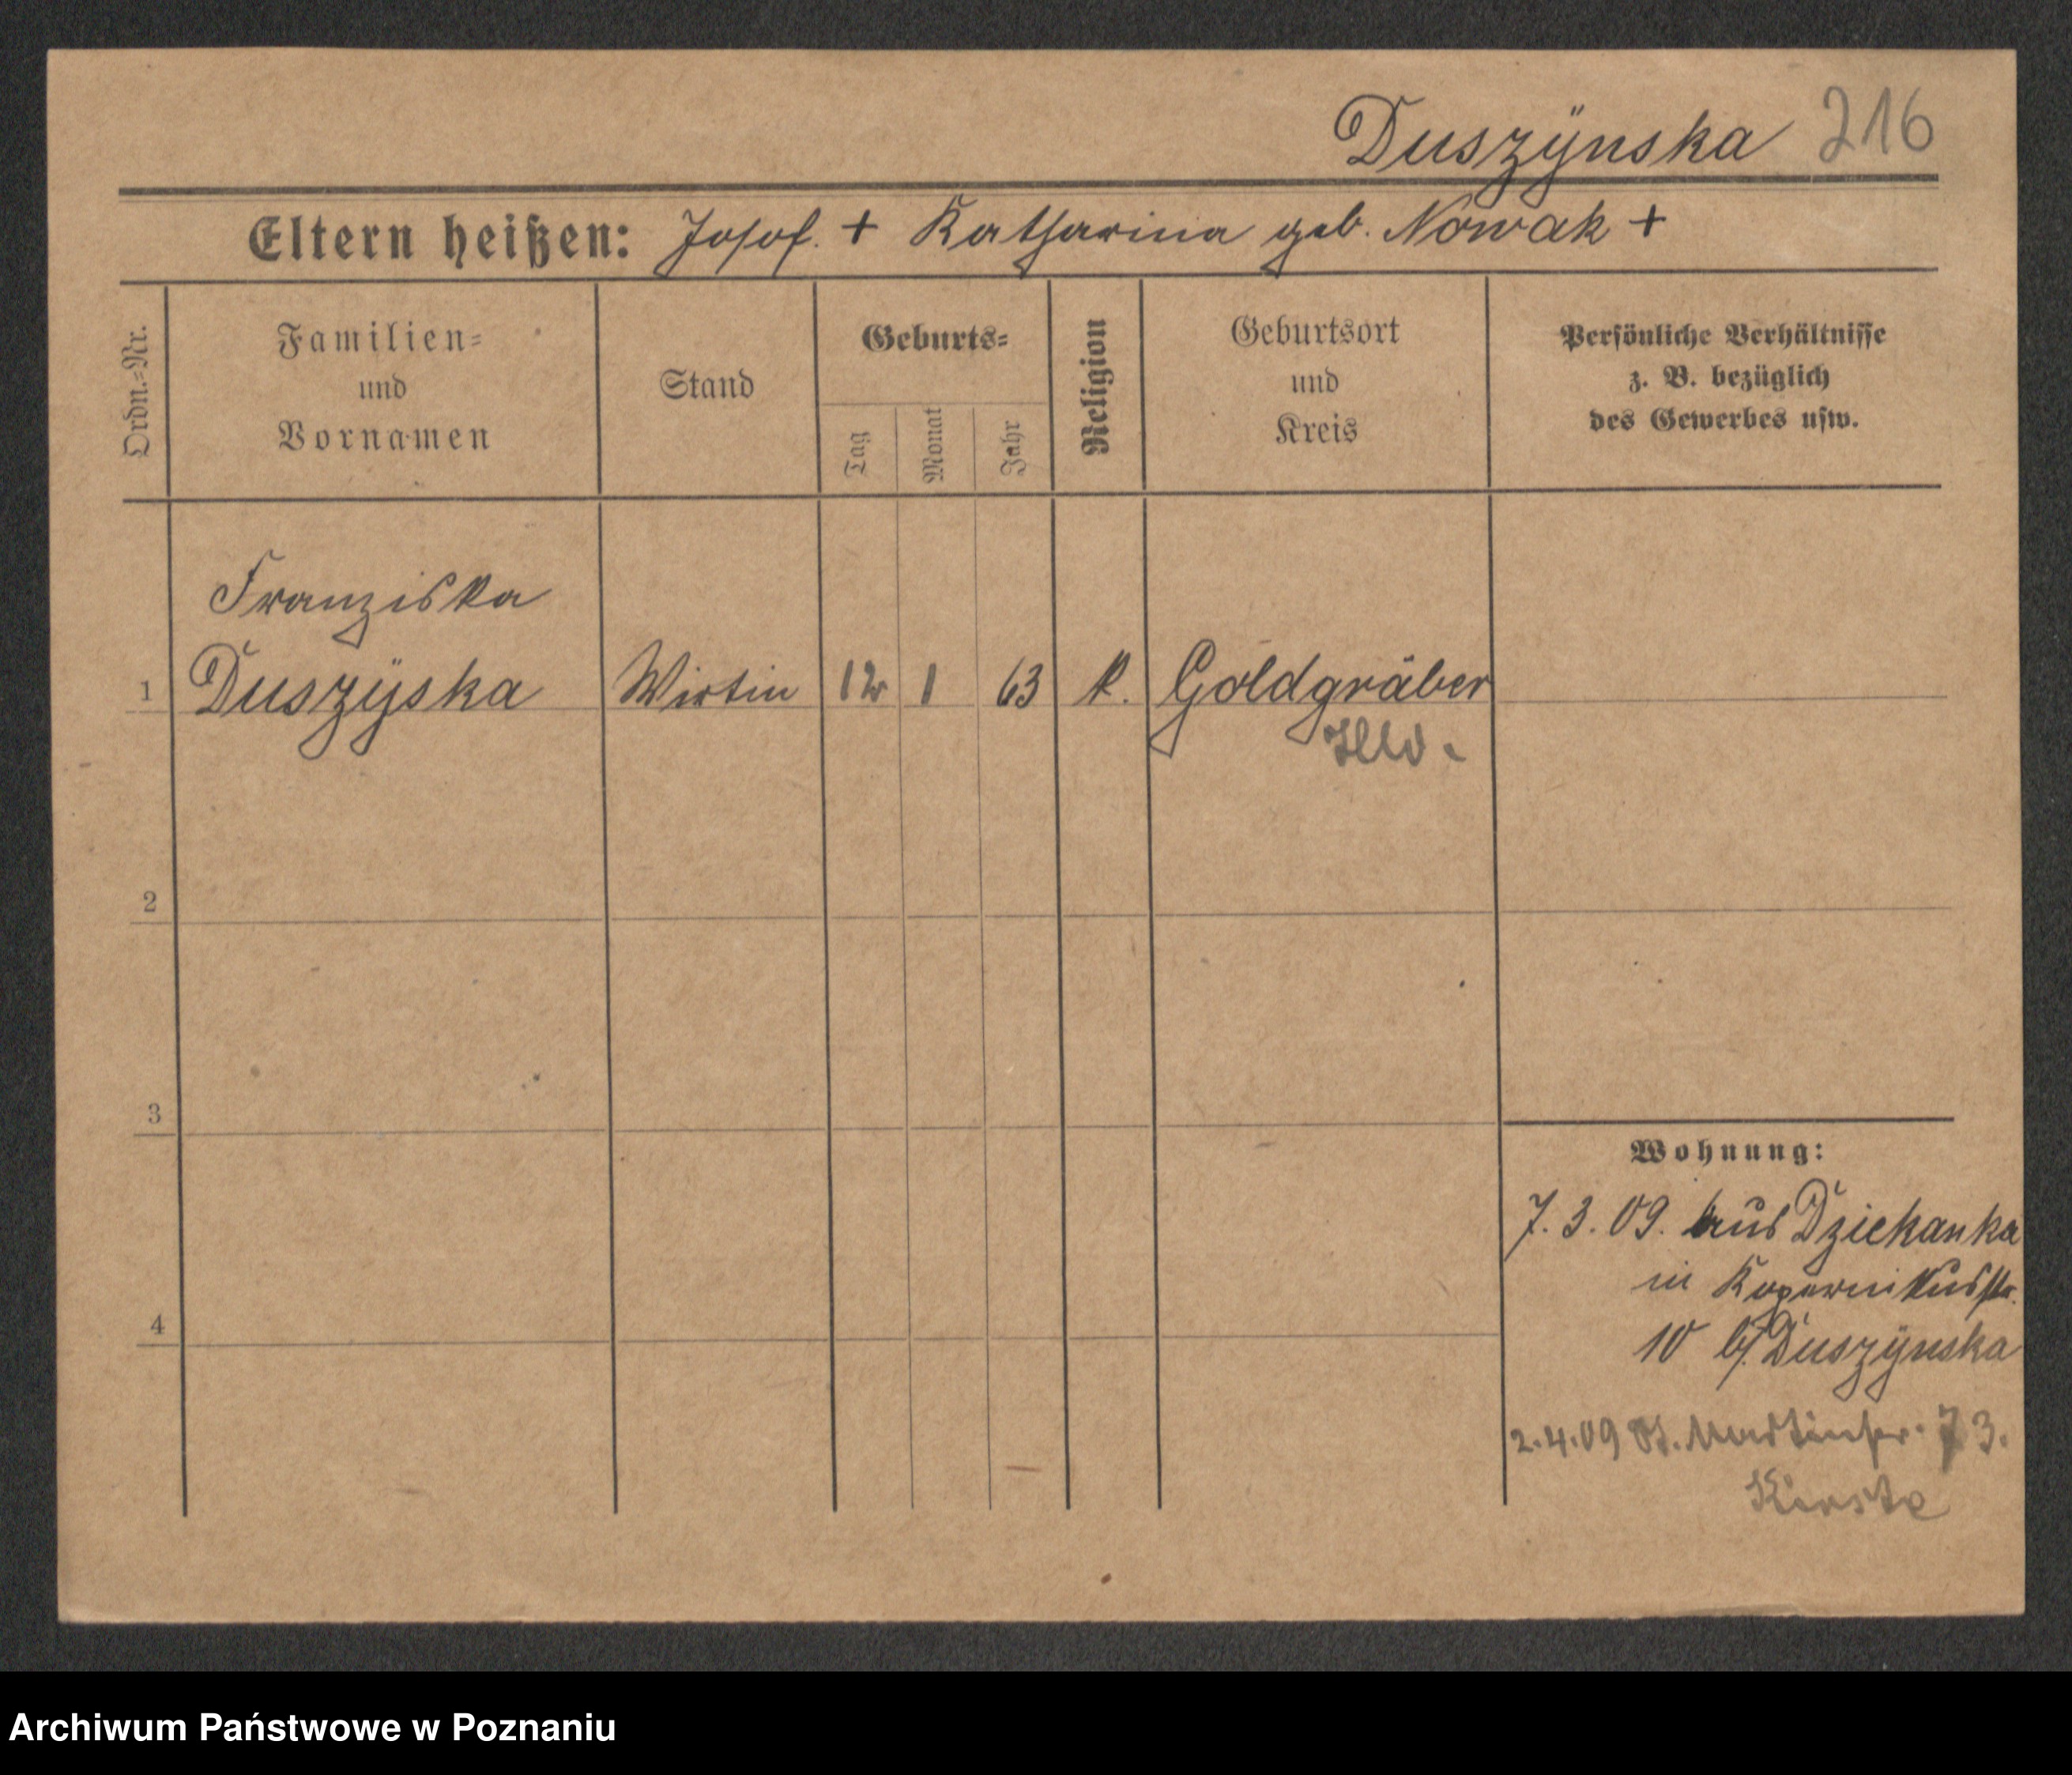 Duszÿnska 216
Eltern heißen: Josef. + Katharina geb. Nowak +
Ordn.=Nr.
Familien=
und
Vornamen
Stand
Geburts=
Tag
Monat
Jahr
Religion
Geburtsort
und
Kreis
Persönliche Verhältnisse
z. B. bezüglich
des Gewerbes usw.
Franziska
1 Duszÿska Wirtin 12 1 63 k. Goldgräber
2
3
4
Wohnung:
7. 3. 09. aus Dziekanka
in Kopernikusstr.
10 b/ Duszÿnska
2.4.09 St. Martinstr. 73.
Archiwum Państwowe w Poznaniu